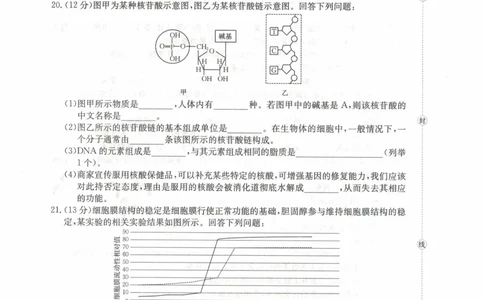 20.(12分)图甲为某种核苷酸示意图,图乙为某核苷酸链示意图。回答下列问题:
OH
O=P—O—CH₂
OH
碱基
O
H H
H H
OH OH
甲
T
C
G
乙
(1)图甲所示物质是______,人体内有______种。若图甲中的碱基是A,则该核苷酸的
中文名称是______。
(2)图乙所示的核苷酸链的基本组成单位是______。在生物体的细胞中,一般情况下,一
个分子通常由______条该图所示的核苷酸链构成。
(3)DNA的元素组成是______,与其元素组成相同的脂质是______(列举
1个)。
(4)商家宣传服用核酸保健品,可以补充某些特定的核酸,可增强基因的修复能力,我们应该
对此持否定态度,理由是服用的核酸会被消化道彻底水解成______,从而失去其相应
的功能。
21.(13分)细胞膜结构的稳定是细胞膜行使正常功能的基础,胆固醇参与维持细胞膜结构的稳
定,某实验的相关实验结果如图所示。回答下列问题:
细胞膜流动性相对值
90
80
70
60
50
40
30
20
10
封
线